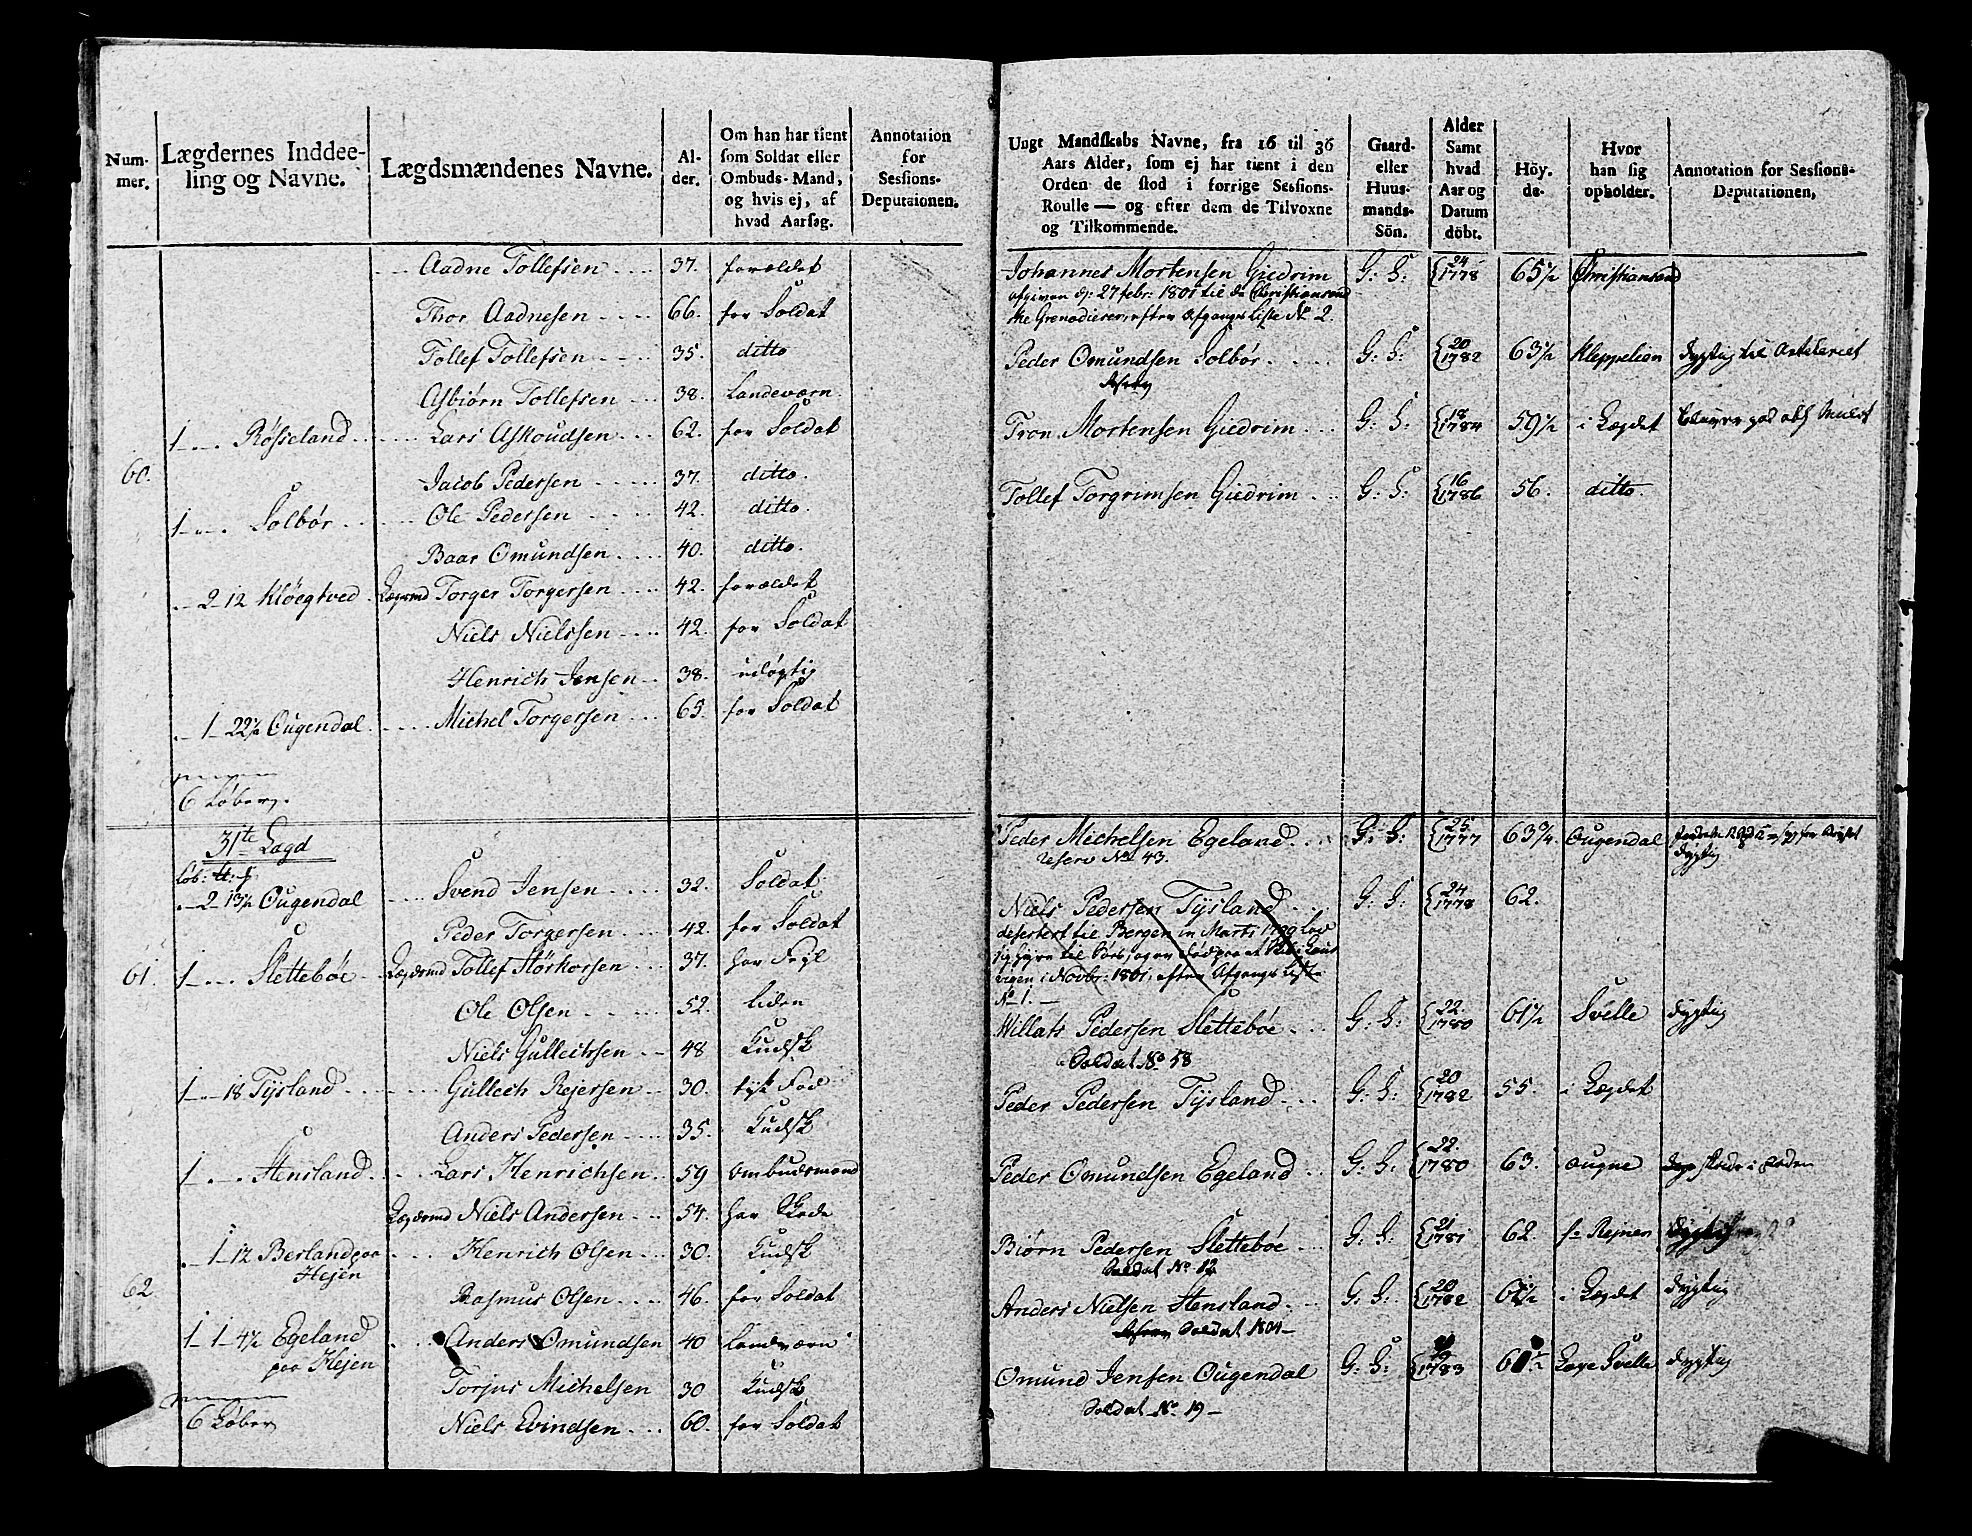 Num-
mer.
Lægdernes Inddee-
ling og Navne.
Lægdsmændenes Navne.
Al-
der.
Om han har tient
som Soldat eller
Ombuds-Mand,
og hvis ej, af
hvad Aarsag.
Annotation
for
Sessions-
Deputaionen.
Aadne Tollefsen 37. foraldet
Thor Aadnesen 66. for Soldat
Tollef Tollefsen 35. ditto
Asbiørn Tollefsen 38. Landeværn
1 Røsseland Lars Askoudsen 62. for Soldat
60.
Jacob Pedersen 37. ditto.
1 Solbør Ole Pedersen 42. ditto.
Baar Omundsen 40. ditto.
2-12 Kløegtved Lægdsmd Torger Torgersen 42. foraldet
Niels Nielssen 42. for Soldat
Henrich Jensen 38. udøgtig
1-22½ Ougendal Michel Torgersen 65. for Soldat
6 Løber.
31te Lægd
Løb:
2-13½ Ougendal Svend Jensen 32. Soldat
Peder Torgersen 42. for Soldat
61. 1 Slettebøe Lægdsmd Tollef Størkorsen 37. har Feyl
Ole Olsen 52. liden
Niels Gulleichsen 48 Kudsk
1-18 Tysland Gullech Rejersen 30. tyk Fod
Anders Pedersen 35. Kudsk
1 Stensland Lars Henrichsen 59 Ombudsmand
Lægdsmd Niels Andersen 54. har Skade
1-12 Berland paa
Hejen
Henrich Olsen 30. Kudsk
62.
Rasmus Olsen 46. for Soldat
1 1-4½ Egeland
paa Hejen
Anders Omundsen 40 Landværn
Torjus Michelsen 30 Kudsk
6 Løber Niels Evindsen 60. for Soldat
Ungt Mandskabs Navne, fra 16 til 36
Aars Alder, som ej har tient i den
Orden de stod i forrige Sessions-
Roulle — og efter dem de Tilvoxne
og Tilkommende.
Gaard-
eller
Huus-
mands-
Sön.
Alder
Samt
hvad
Aar og
Datum
döbt.
Höy-
de.
Hvor
han sig
opholder.
Annotation for Sessions-
Deputationen,
Johannes Mortensen Giedrim G: S: 24 1778 65½ Christiansand
afgiven d: 27 febr: 1801 til de Christiansand
ske Grenadierer, efter Afgangs Liste No 2.
Peder Omundsen Solbør G: S: 20 1782 63½ Kleppelien dygtig til Artileriet
Tron Mortensen Giedrim G: S: 18 1784 59½ i Lægdet
Tollef Torgrimsen Giedrim G: S: 16 1786 56. ditto.
Peder Michelsen Egeland G: S: 25 1777 63¾. Ougendal
reserv No 43. dygtig
Niels Pedersen Tysland G: S: 24 1778 62.
desertert til Bergen in Marti 1799
vigen i Novbr: 1801, efter Afgangs Liste
No 1.
Willats Pedersen Slettebøe G: S: 22. 1780 61½ Svelle dygtig
Soldat No 58
Peder Pedersen Tysland G: S: 20 1782 55. i Lægdet
Peder Omundsen Egeland G: S: 22. 1780 63. ougne
Biørn Pedersen Slettebøe G: S: 21 1781 62. Rejnen dygtig
Soldat No 12
Anders Nielsen Stensland G: S: 20 1782 i Lægdet dygtig
Soldat 1801
Omund Jensen Ougendal G: S: 19 1783 Svelle dygtig
Soldat No 19